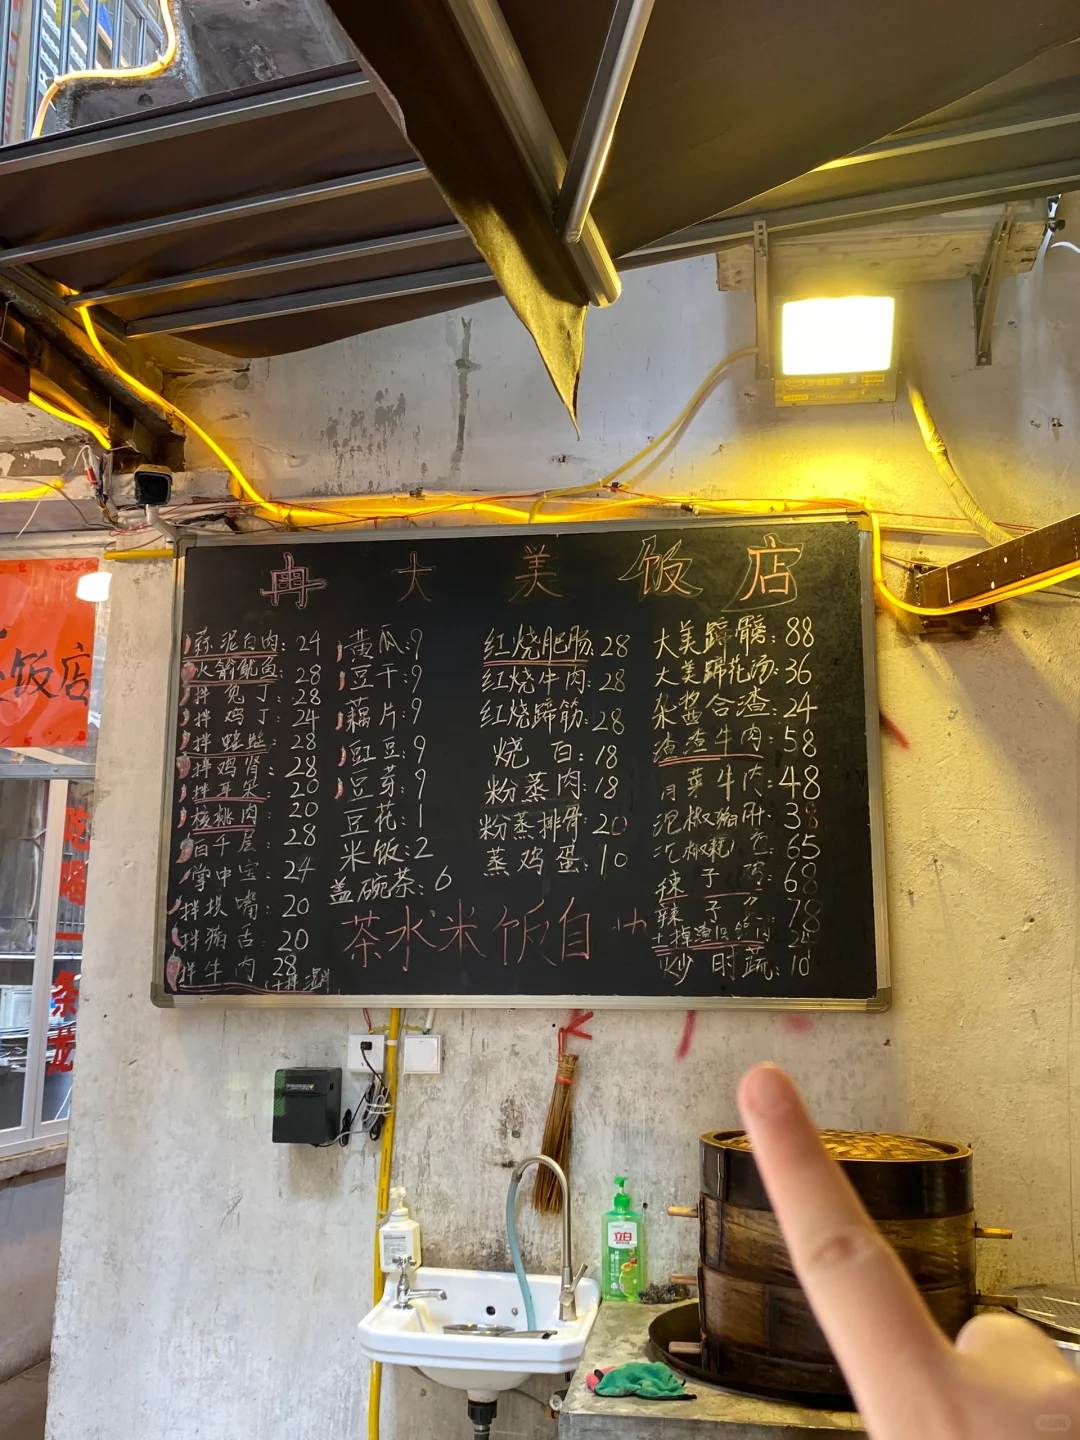 冉大美饭店
蒜泥白肉:24
火爆鱿鱼:28
拌兔丁:28
拌鸡丁:24
拌 28
拌鸡肾:28
拌耳朵 20
核桃肉:20
百千层:28
掌中宝:24
拌拱嘴:20
拌猪舌:20
拌牛肉 28
黄瓜:9
豆干:9
藕片:9
豇豆:9
豆芽:9
豆花:1
米饭:2
盖碗茶:6
茶水米饭自
红烧肥肠:28
红烧牛肉:28
红烧蹄筋:28
烧白:18
粉蒸肉:18
粉蒸排骨:20
蒸鸡蛋:10
大美蹄髈:88
大美蹄花汤:36
杂酱合渣:24
渣渣牛肉:58
牛肉:48
泡椒猪肝:38
65
辣子鸡:68
辣子 78
24
炒时蔬:10
饭店
吃喝一条龙
立白